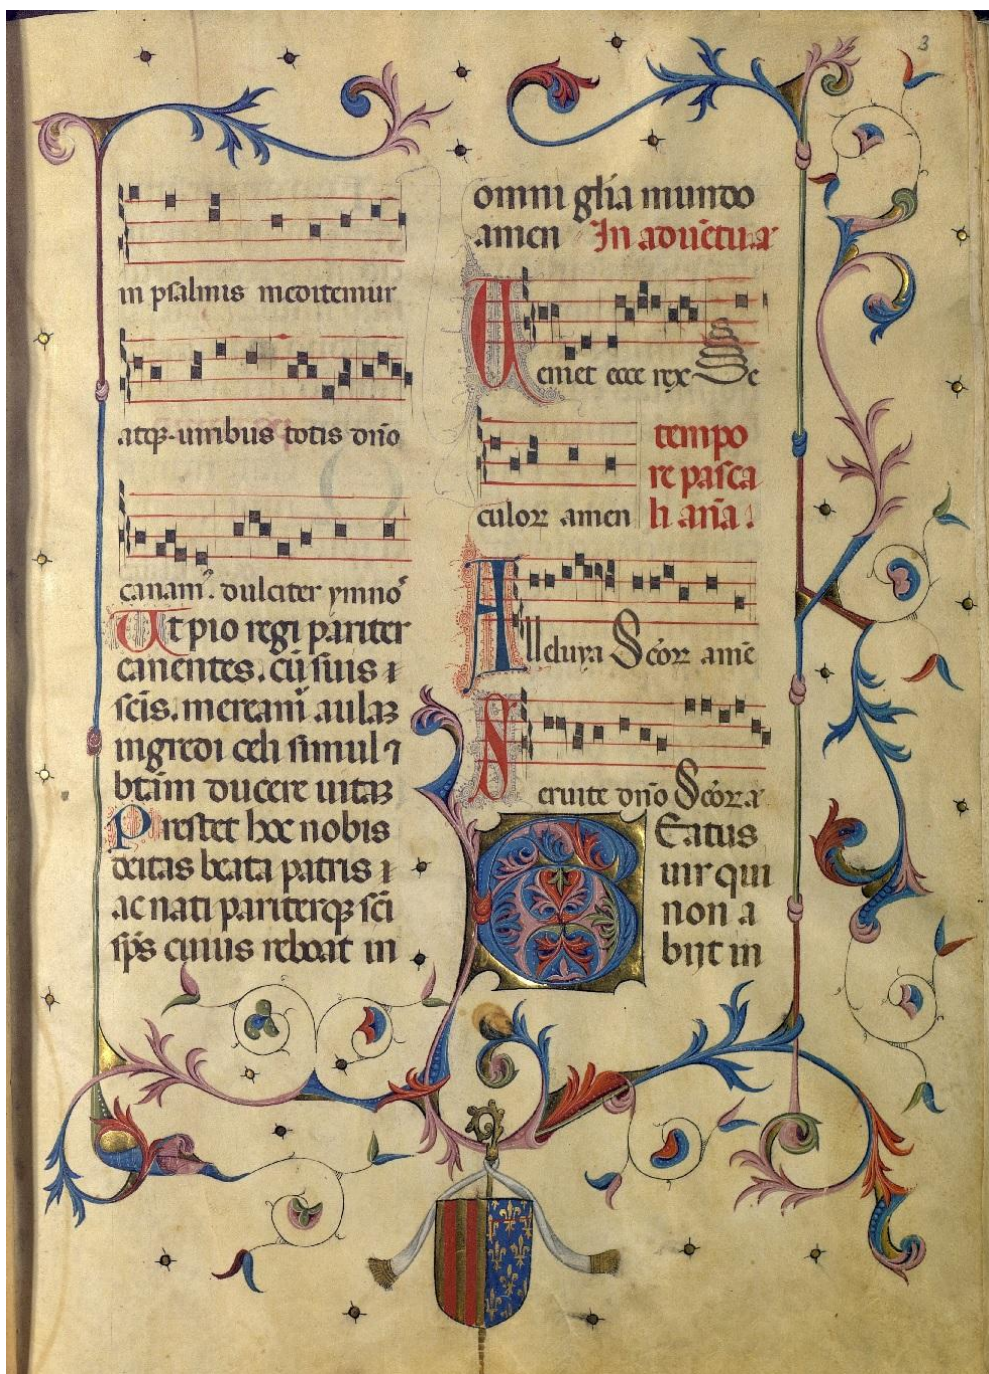 3
in psalmis meditemur
atq; uiribus totis dño
canam᷒. dulciter ymno᷒
Ut pio regi pariter
canentes. cū suis ⁊
scīs. meream᷒ aulaꝫ
ingredi celi simul ⁊
btām ducere uitaꝫ
Prestet hoc nobis
deitas beata patris ⁊
ac nati pariterq; scī
sps̄ cuius reboat in
omni glīa mundo
amen In aduētu a᷒
Veniet ecce rex Se
culoꝝ amen
tempo
re pasca
li an̄a.
Alleluya Scōꝝ amē
Seruite dn̄o Scōꝝ a
Beatus
uir qui
non a
bijt in